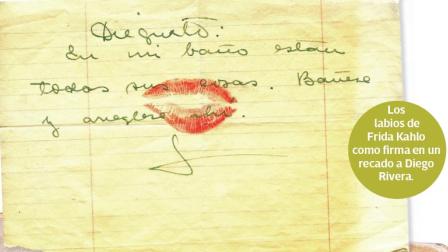 Dieguito:
En mi baño están
todas sus cosas. Bañese
y arreglese ahi.
Los
labios de
Frida Kahlo
como firma en un
recado a Diego
Rivera.